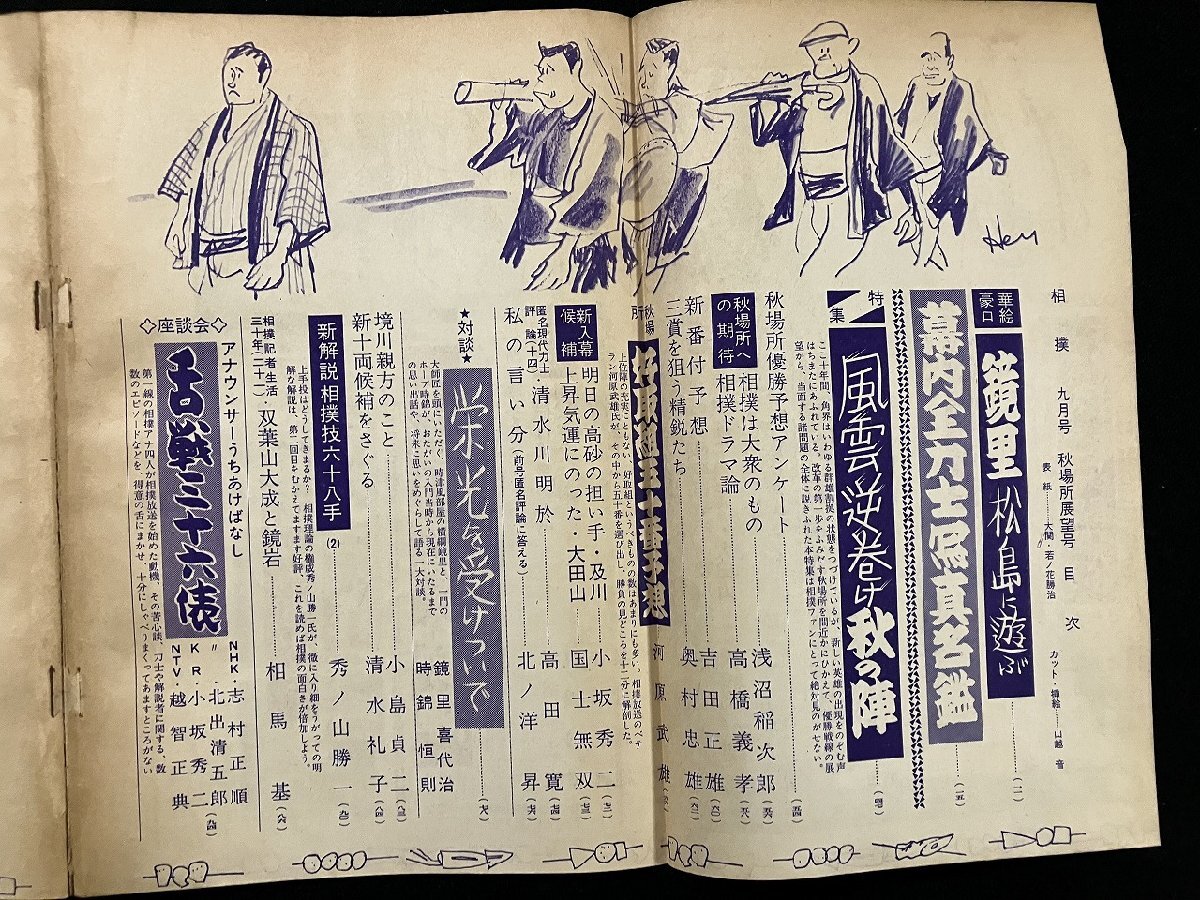 相撲 九月号 秋場所展望号 目次
表紙……大関・若ノ花勝治
カット・挿絵……山越音
華絵
豪口
鏡里松島に遊ぶ……(一一)
幕内全力士写真名鑑……(一五)
特集
風雲逆巻け秋の陣……(四七)
ここ十年間、角界はいわゆる群雄割拠の状態をつづけているが、新しい英雄の出現をのぞむ声
はちまたにあふれている。改革の第一歩をふみだす秋場所を間近かにひかえて、優勝戦線の展
望から、当面する諸問題の全体に説きふれた本特集は相撲ファンにとって絶対見のがせない。
秋場所優勝予想アンケート……(五四)
秋場所への期待
相撲は大衆のもの……浅沼稲次郎(五六)
相撲ドラマ論……高橋義孝(五八)
新番付予想……吉田正雄(六〇)
三賞を狙う精鋭たち……奥村忠雄(六二)
秋場所
好取組五十番予想……河原武雄
上位陣の充実こともない好取組というべきものの数はあまりにも多い。相撲放送のベテ
ラン河原武雄氏が、その中から五十番を選び出し、勝負の見どころを十二分に解剖した。
新入幕候補
明日の高砂の担い手・及川……小坂秀二(七二)
上昇気運にのった・大田山……国士無双(七三)
匿名現代力士評論(十四)
清水川明於……高田寛(七四)
私の言い分(前号匿名評論に答える)……北ノ洋昇(七六)
★対談★
栄光を受けついで……(七八)
鏡里喜代治
時錦恒則
大師匠を頭にいただく、時津風部屋の横綱鏡里と、一門の
ホープ時錦が、おたがいの入門当時から現在にいたるまで
の思い出話や、将来に思いをめぐらして語る一大対談。
境川親方のこと……小島貞二(八三)
新十両候補をさぐる……清水礼子(八四)
新解説相撲技六十八手(2)……秀ノ山勝一(九〇)
上手投はどうしてきまるか?相撲理論の権威秀ノ山勝一氏が、微に入り細をうがっての明
解な解説は、第二回目をむかえてますます好評、これを読めば相撲の面白さが倍加しよう。
相撲記者生活三十年(二十一)
双葉山大成と鏡岩……相馬基(八六)
◇座談会◇
アナウンサーうちあけばなし
古戦三十六俵
NHK・志村正順
〃 北出清五郎
KR・小坂秀二
NTV・越智正典
(九四)
第一線の相撲アナ四人が相撲放送を始めた動機、その苦心談、力士や解説者に関する、数
数のエピソードなどを、得意の舌にまかせ、十分にしゃべりまくってあますところがない